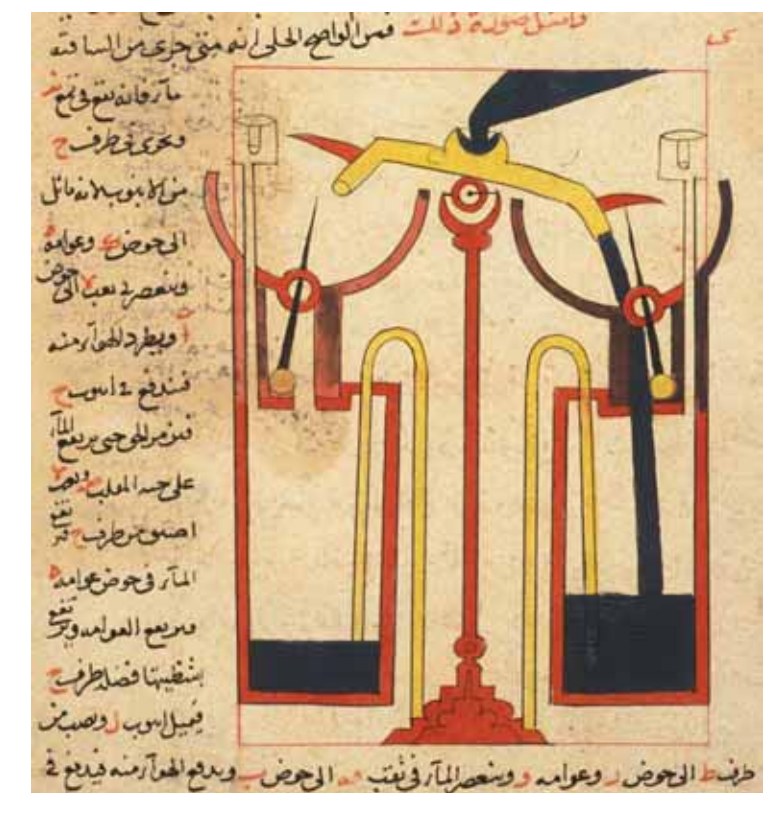 وامثل صورة ذلك فمن الواضح الجلي انه متى جرى من الساقية
مآء فانه يقع في قمع
ويجرى في طرف ح
من الانبوب لانه مائل
الى حوض وعوامه
وينعصر في ثقب الى حوض
ويطرد الهوآء منه
فيندفع في انبوب ح
فيزمر الى حين يرتفع المآء
على
من طرف ح
المآء في حوض عوامه
فترتفع العوامه
بشظيتها فضلة طرف ح
فيميل انبوب ل ويصب من
طرف ط الى حوض ر وعوامه و وينعصر المآء في ثقب الى حوض ب ويدفع الهوآء منه فيندفع في
ى